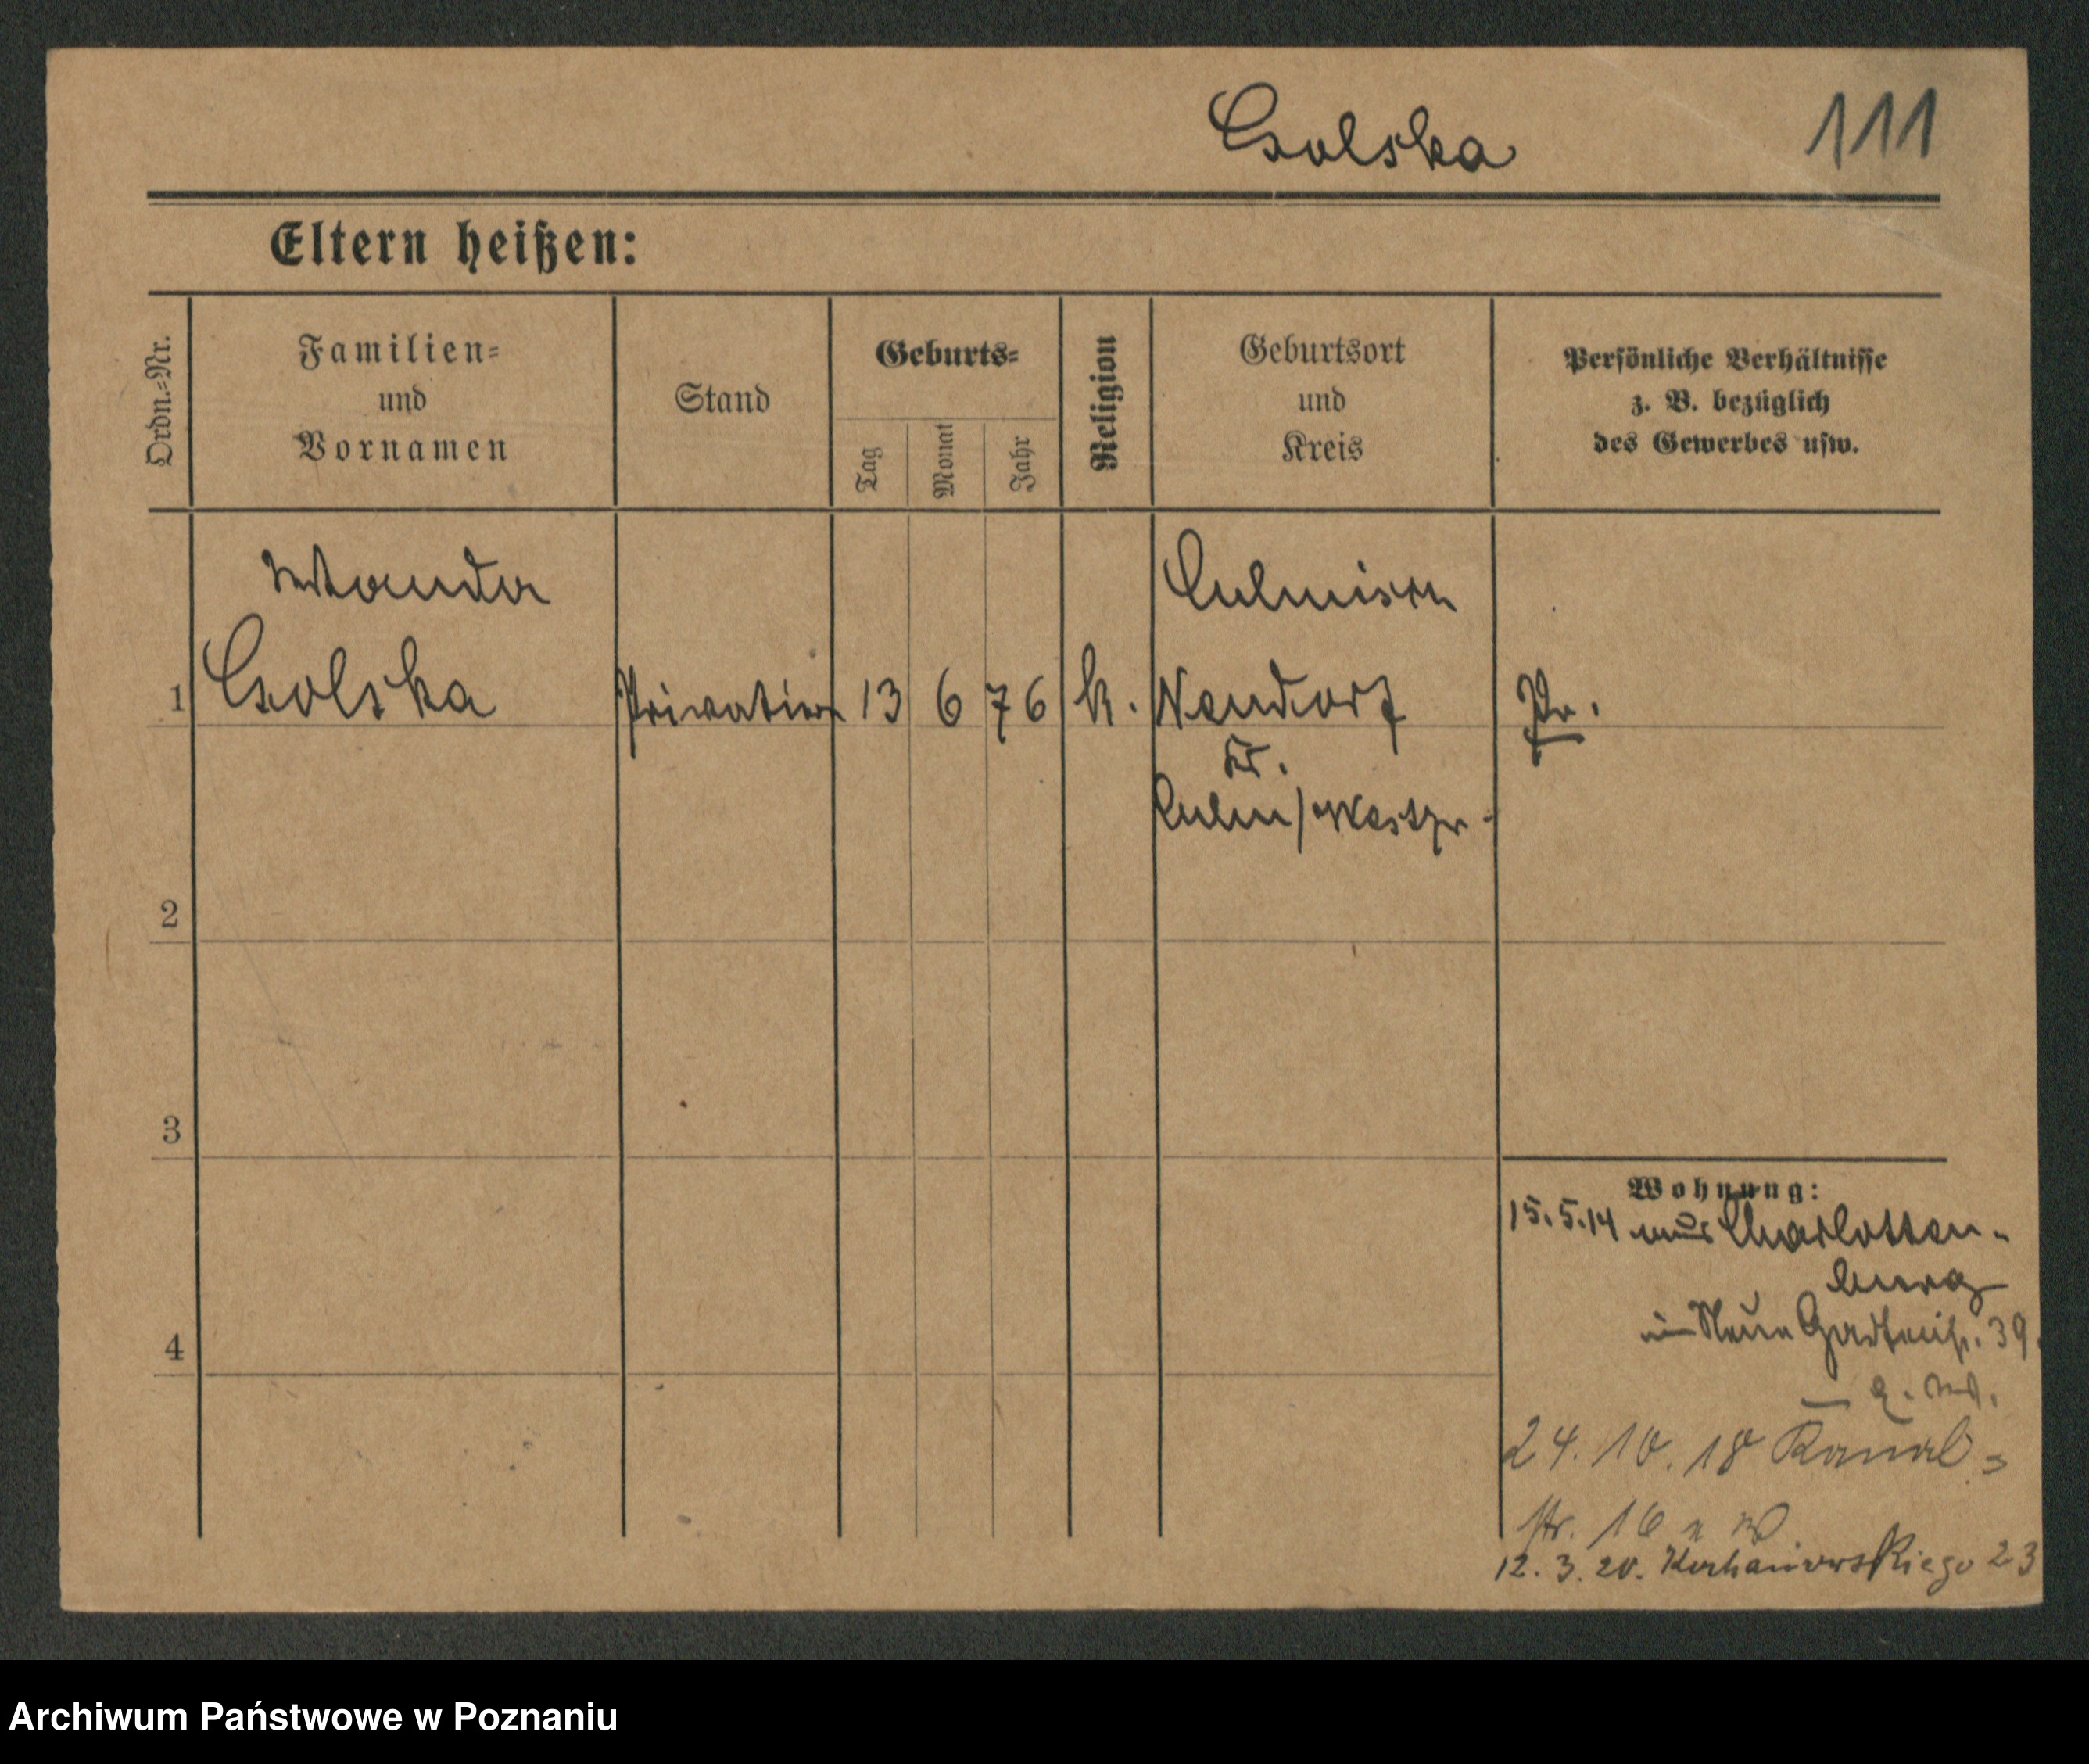 Czolska
111
Eltern heißen:
Ordn.=Nr.
Familien=
und
Vornamen
Stand
Geburts=
Tag
Monat
Jahr
Religion
Geburtsort
und
Kreis
Persönliche Verhältnisse
z. B. bezüglich
des Gewerbes usw.
Wanda
Culmisch
1 Czolska Privatiere 13 6 76 k. Neudorf Pr.
Kr.
Culm/Westpr.
2
3
4
Wohnung:
15.5.14 aus Charlotten-
burg
in Neue Gartenstr. 39.
24.10.18 Kanal=
str. 16
12.3.20. Kochanowskiego 23
Archiwum Państwowe w Poznaniu